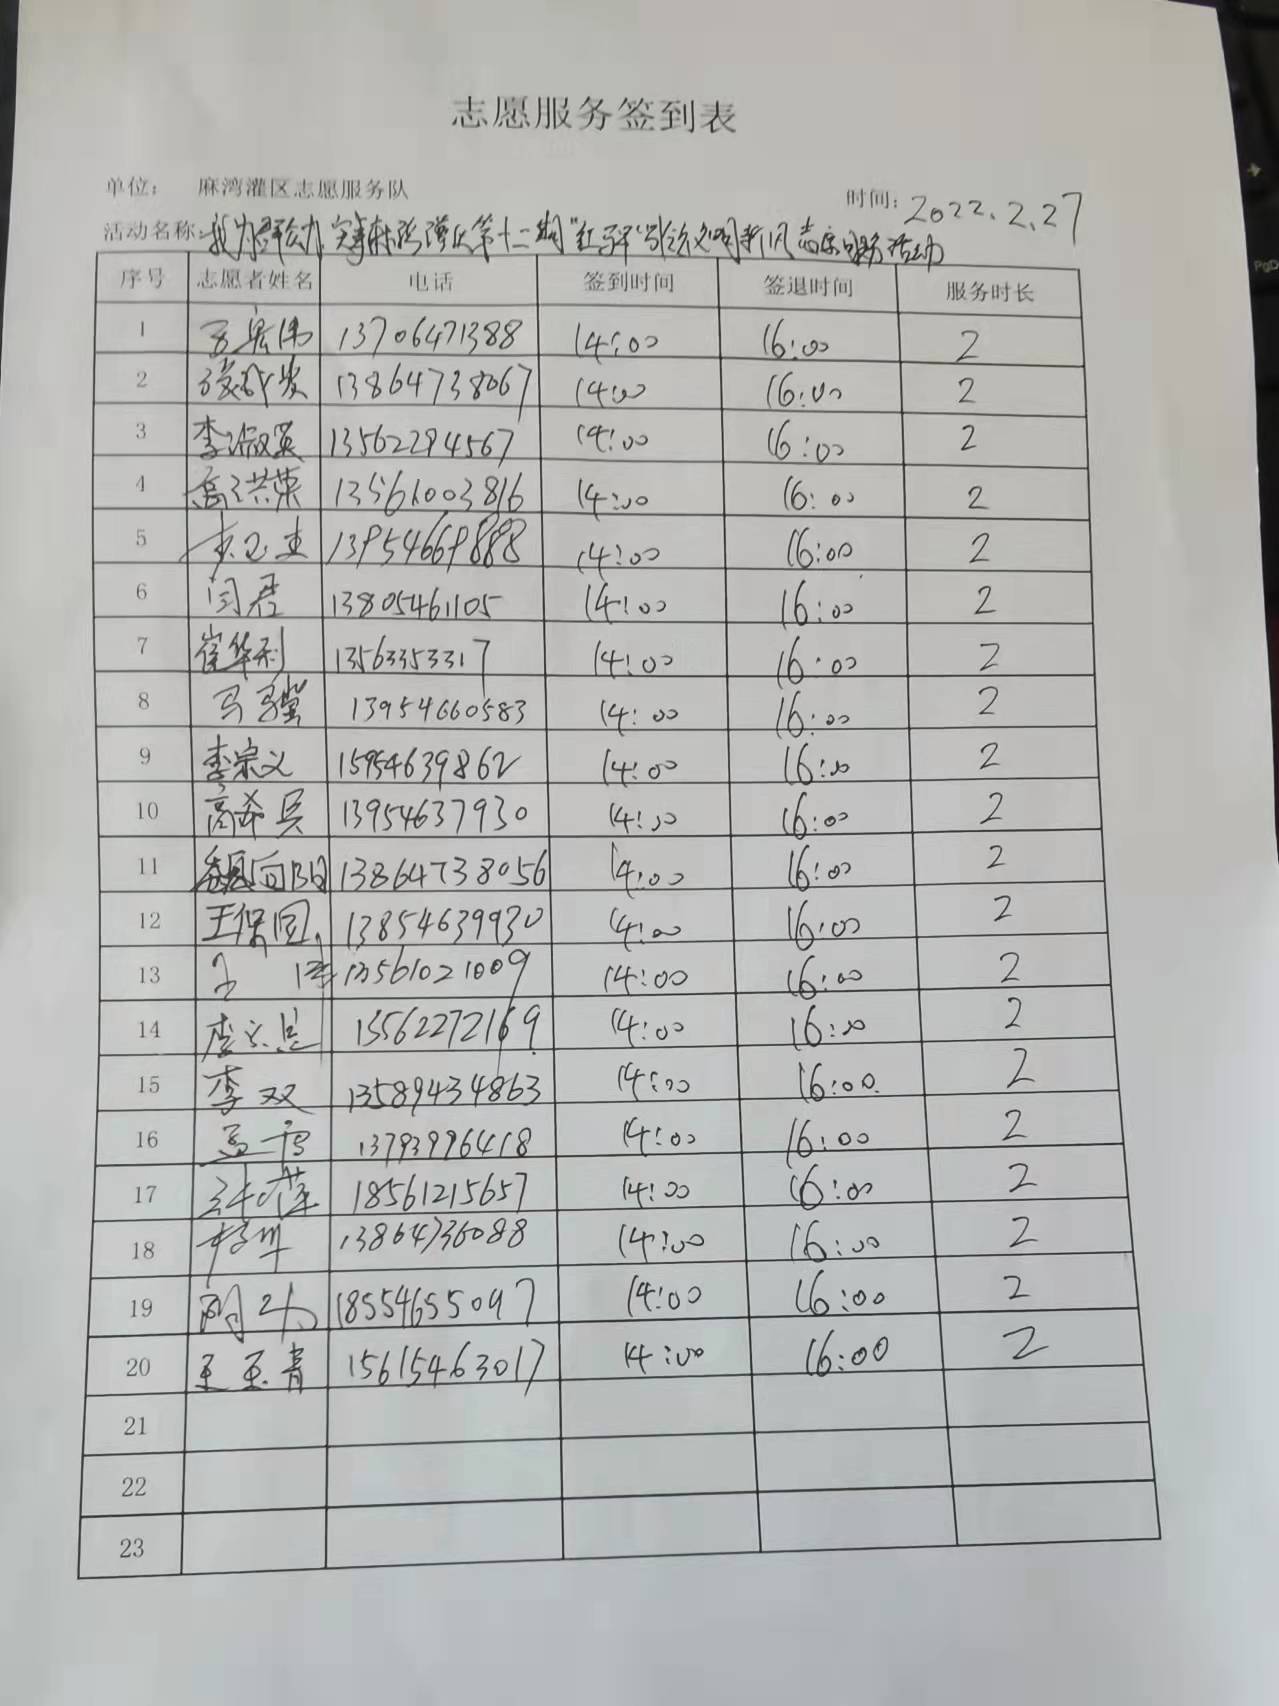 志愿服务签到表
单位： 麻湾灌区志愿服务队 时间：2022.2.27
活动名称：我为群众办实事 第十二期"红 引 文明新风志愿服务活动
序号 志愿者姓名 电话 签到时间 签退时间 服务时长
1 13706471388 14:00 16:00 2
2 13864738067 14:00 16:00 2
3 李淑英 13562294567 14:00 16:00 2
4 高洪荣 13561003816 14:00 16:00 2
5 13954669888 14:00 16:00 2
6 闫君 13805461105 14:00 16:00 2
7 崔华利 13563353317 14:00 16:00 2
8 马骥 13954660583 14:00 16:00 2
9 李宗义 15954639862 14:00 16:00 2
10 高希兵 13954637930 14:00 16:00 2
11 向阳 13864738056 14:00 16:00 2
12 王保国 13854639930 14:00 16:00 2
13 13561021009 14:00 16:00 2
14 13562272169 14:00 16:00 2
15 李双 13589434863 14:00 16:00 2
16 13793996418 14:00 16:00 2
17 18561215657 14:00 16:00 2
18 13864736088 14:00 16:00 2
19 18554655097 14:00 16:00 2
20 15615463017 14:00 16:00 2
21
22
23
PgD